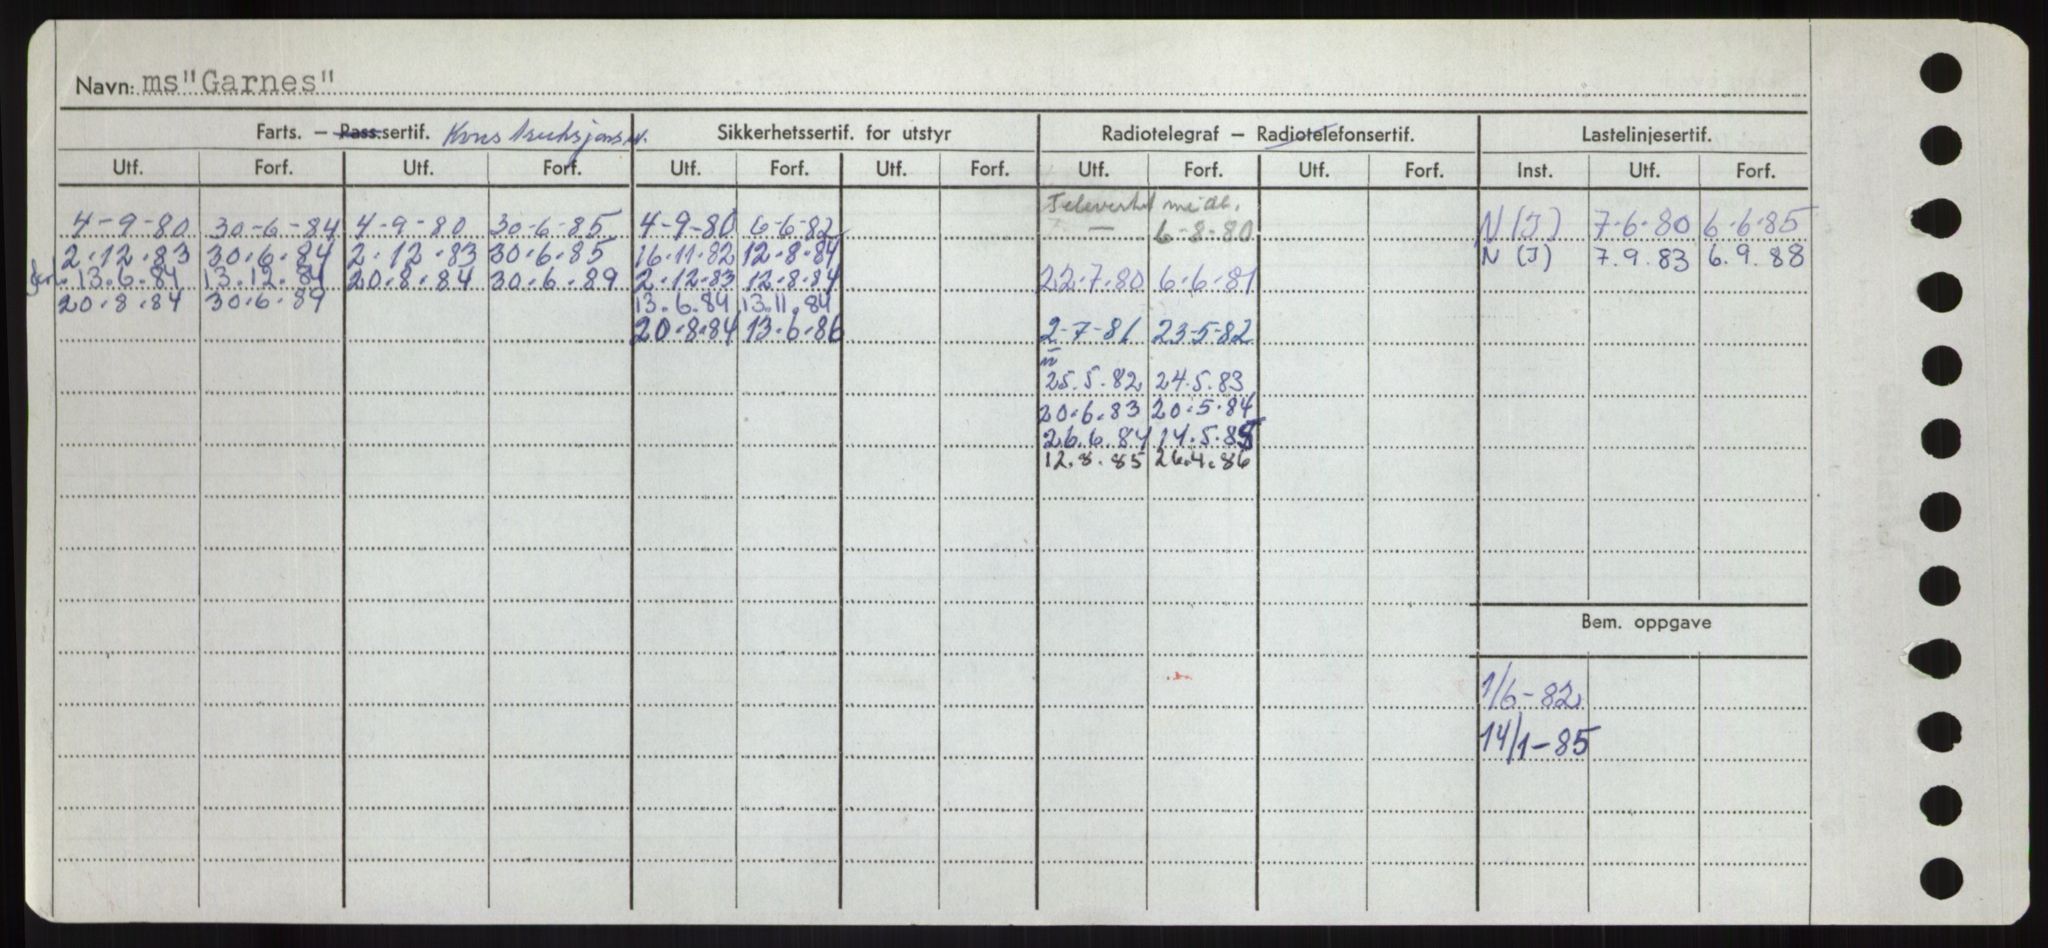 Navn: ms"Garnes"
Farts. — Pass.sertif. Sikkerhetssertif. for utstyr Radiotelegraf — Radiotelefonsertif. Lastelinjesertif.
Utf. Forf. Utf. Forf. Utf. Forf. Utf. Forf. Utf. Forf. Utf. Forf. Inst. Utf. Forf.
Televerket
4-9-80 30-6-84 4-9-80 30-6-85 4-9-80 6-6-82 — 6-8-80 N (J) 7-6-80 6-6-85
2.12.83 30.6.84 2.12.83 30.6.85 16.11.82 12.8.84 N (J) 7.9.83 6.9.88
13.6.84 13.12.84 20.8.84 30.6.89 2.12.83 12.8.84 22.7.80 6.6.81
20.8.84 30.6.89 13.6.84 13.11.84
20.8.84 13.6.86 2-7-81 23-5-82
25.5.82 24.5.83
20.6.83 20.5.84
26.6.84 14.5.85
12.8.85 26.4.86
Bem. oppgave
1/6-82
14/1-85